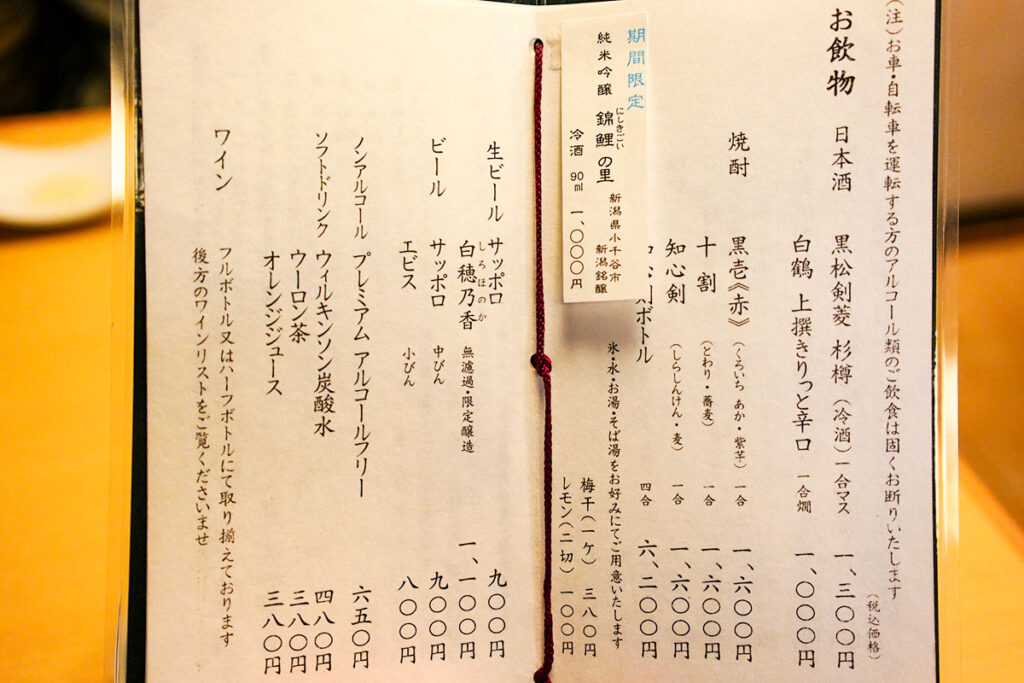 (注)お車・自転車を運転する方のアルコール類のご飲食は固くお断りいたします
(税込価格)
お飲物
日本酒 黒松剣菱 杉樽 (冷酒) 一合マス 一、三〇〇円
白鶴 上撰きりっと辛口 一合燗 一、〇〇〇円
焼酎 黒壱《赤》 (くろいち あか・紫芋) 一合 一、六〇〇円
十割 (とわり・蕎麦) 一合 一、六〇〇円
知心剣 (しらしんけん・麦) 一合 一、六〇〇円
剣ボトル 四合 六、二〇〇円
氷・水・お湯・そば湯をお好みにてご用意いたします
梅干(一ケ) 三八〇円
レモン(二切) 一〇〇円
期間限定
純米吟醸 錦鯉の里 新潟県小千谷市
にしきごい
新潟銘醸
冷酒 90ml 一、〇〇〇円
生ビール サッポロ 九〇〇円
白穂乃香 無濾過・限定醸造 一、一〇〇円
しろほのか
ビール サッポロ 中びん 九〇〇円
エビス 小びん 八〇〇円
ノンアルコール プレミアム アルコールフリー 六五〇円
ソフトドリンク ウィルキンソン炭酸水 四八〇円
ウーロン茶 三八〇円
オレンジジュース 三八〇円
ワイン フルボトル又はハーフボトルにて取り揃えております
後方のワインリストをご覧くださいませ